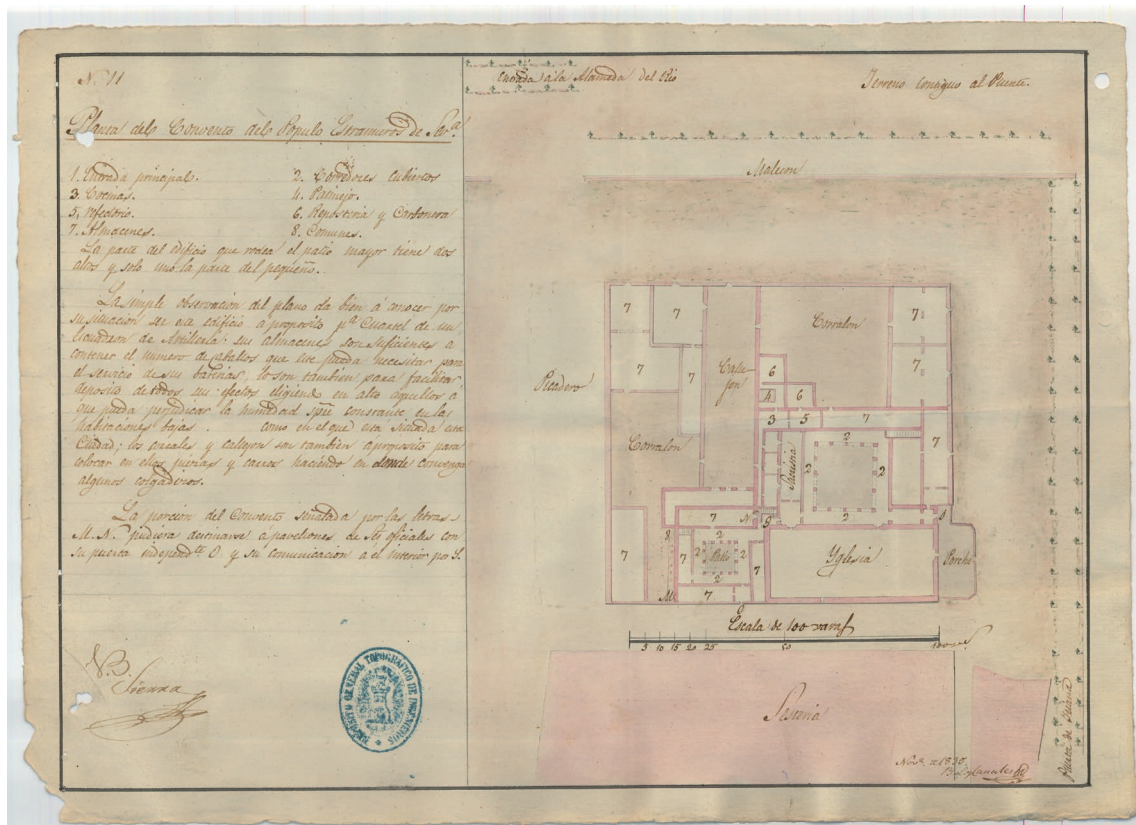 N. 11
Planta delo Convento delo Populo Estramuros de Sev.ª
1. Entrada principal.
2. Corredores cubiertos
3. Cocinas.
4. Patinejo.
5. refectorio.
6. Reposteria y Carbonera
7. Almacenes.
8. Comunes.
La parte del edificio que rodea el patio mayor tiene dos
altos y solo uno la parte del pequeño.
La simple observacion del plano da bien á conocer por
su situacion ser este edificio a proposito p.ª Cuartel de un
Escuadron de Artilleria: sus almacenes son suficientes a
contener el numero de caballos que se pueda necesitar para
el servicio de sus baterias, lo son tambien para facilitar
deposito de todos sus efectos eligiendo en alto aquellos á
que pueda perjudicar la humedad spre constante en las
habitaciones bajas. como en el que esta situada esta
Ciudad; los corrales y callejon son tambien aproposito para
colocar en ellos piezas y carros haciendo en donde convenga
algunos colgadizos.
La porcion del Convento señalada por las letras
M. N. pudiera destinarse á pavellones de Sres oficiales con
su puerta independ.te O y su comunicacion a el interior por S.
V. B.
Sierra
DEPOSITO GENERAL TOPOGRAFICO DE INGENIEROS
Entrada á la Alameda del Rio
Terreno contiguo al Puente.
Malecon
7
7
7
7
Calle-
jon
Corralon
7
7
Picadero
6
4
6
3
5
7
Corralon
Sacristia
2
2
2
2
7
7
N
S
1
8
7
2
2
Patio
2
2
7
7
7
M
Yglesia
Porche
O
Escala de 100 varas
5 10 15 20 25 50 100 v.s
Puente de Triana
Nov.e de 1830.